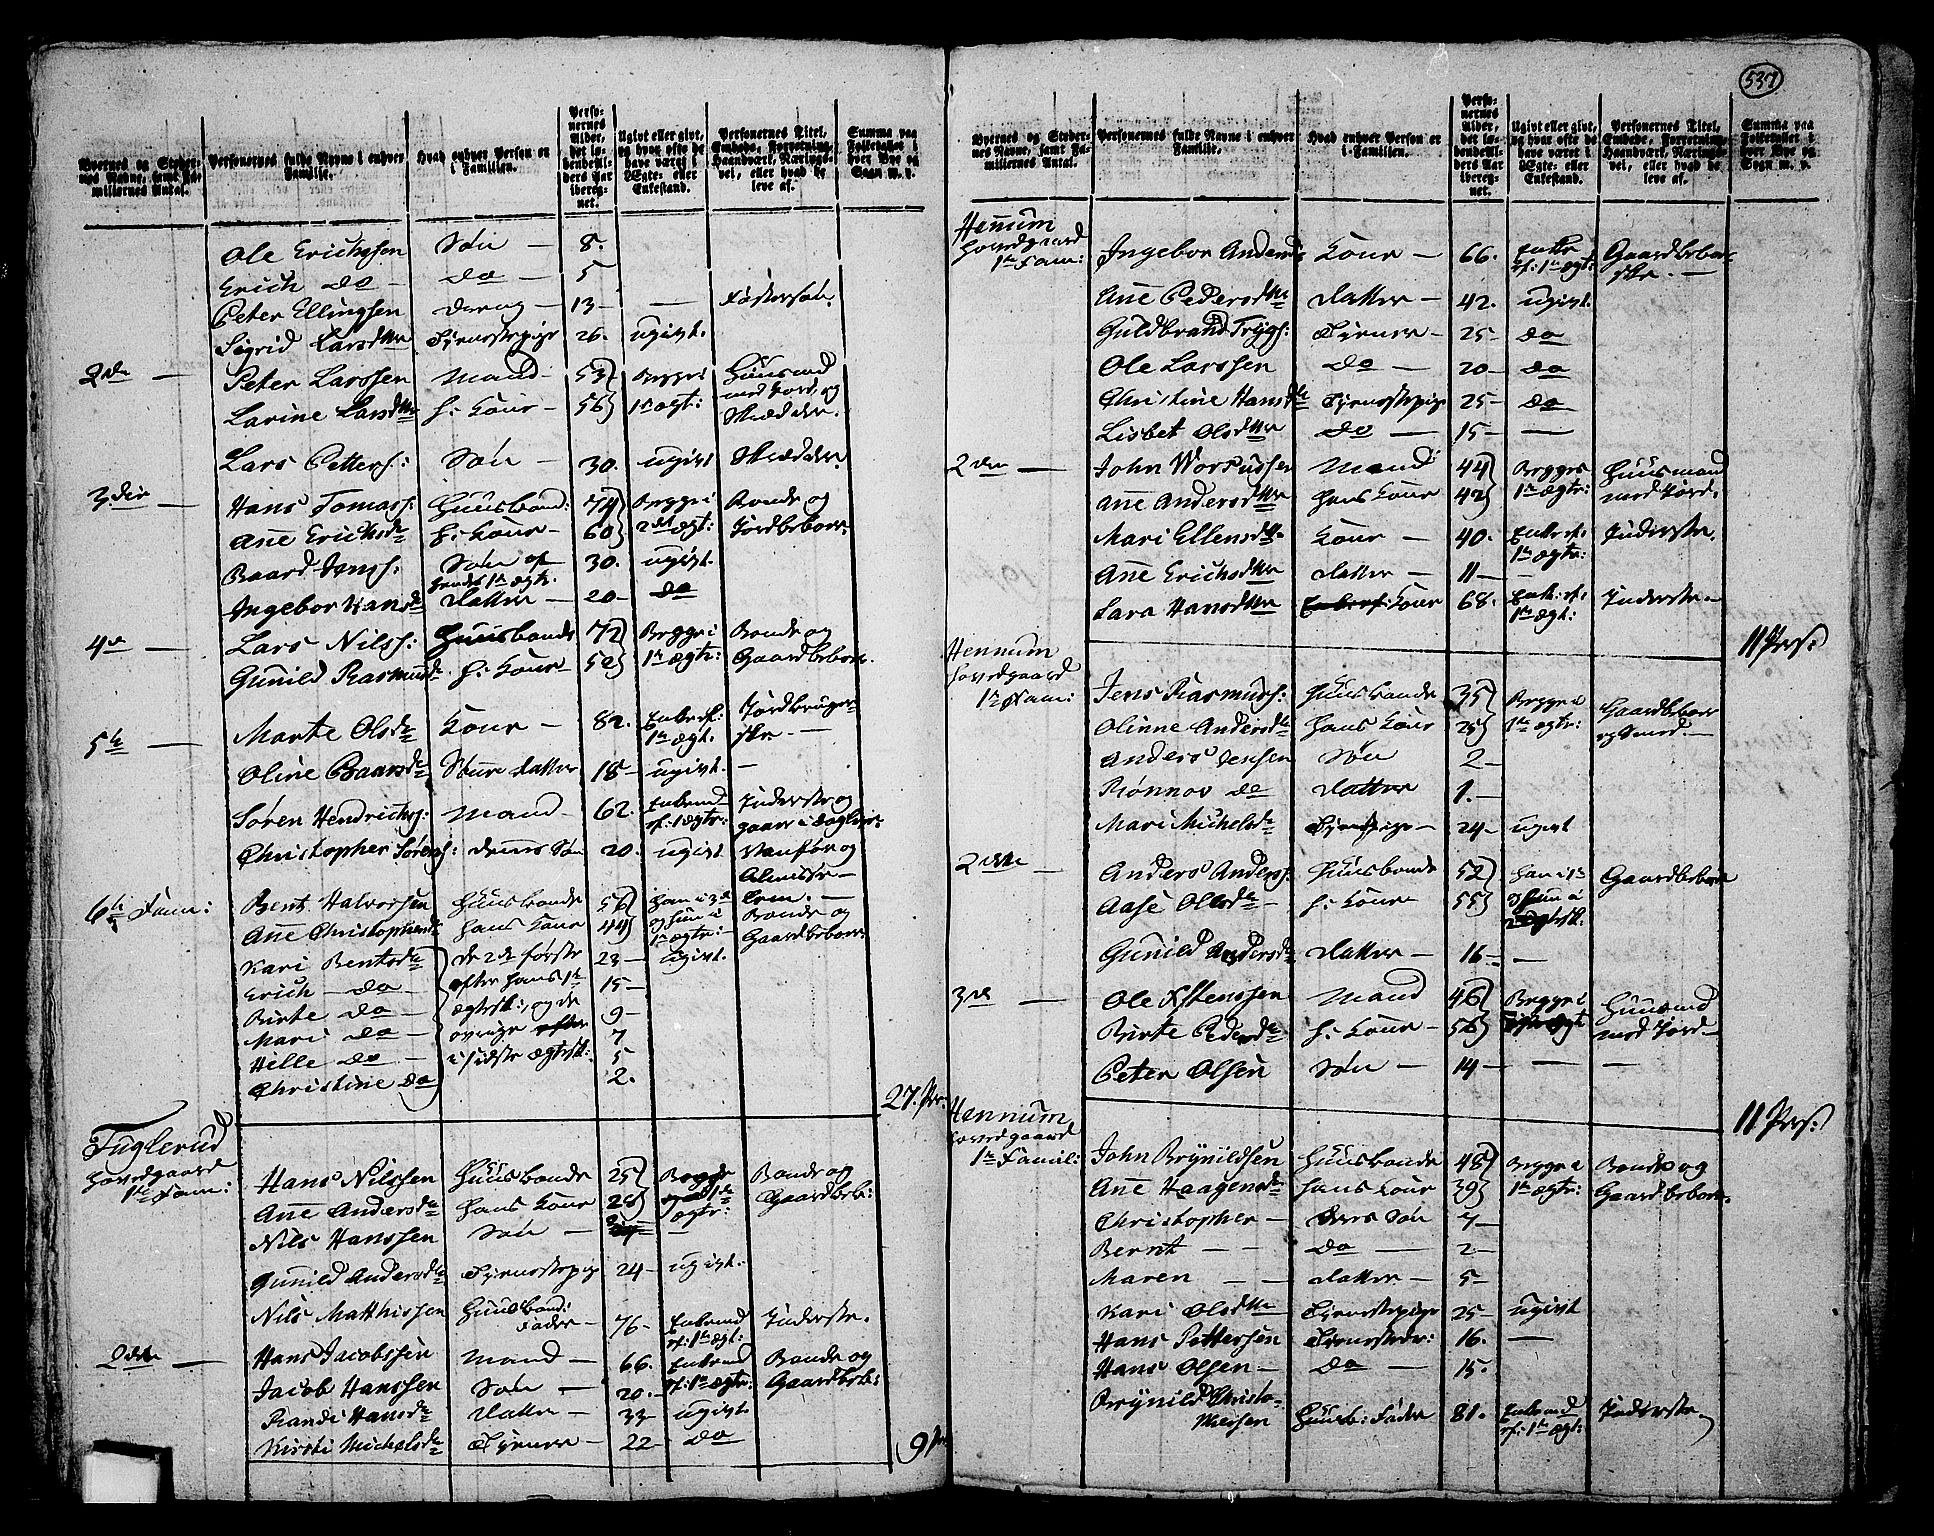 537
Byernes og Steder-
nes Navne, samt Fa-
miliernes Antal.
Personernes fulde Navne i enhver
Familie.
Hvad enhver Person er
i Familien.
Perso-
nernes
Alder,
det lø-
bendeAl-
ders Aar
iberegn-
net.
Ugivt eller givt,
og hvor ofte de
have været i
Ægte- eller
Enkestand.
Personernes Titel,
Embede, Forretning,
Haandværk, Nærings-
vei, eller hvad de
leve af.
Summa paa
Folketallet i
hver Bye og
Sogn m. v.
Ole Erichssen Søn — 8.
Erich do - do — 5
Peter Ellingsen — 13 — — Fostersøn.
Sigrid Larsdtter Tjenestepige 26. ugivt.
2de — Peter Larssen Mand 53 Begge i Huusmd
med Jord og
Larine Larsdtter h: Kone 56 1ste ægt: Skrædder.
Lars Petters: Søn — 30. ugivt Skrædder
3die — Hans Tomass: Huusbond: 74 Begge i Bonde og
Ane Erichsd h: Kone 60 2det ægt: Jordbeboer
Baard Jens: Søn af
hendes 1te ægt: 30. ugivt.
Ingebor Hansd Datter — 20 - do
4de — Lars Nilss: Huusbonde 72 Begge i Bonde og
Gunild Rasmusd h: Kone 52 1te ægt: Gaardbeboer.
5te — Marte Olsd Kone — 82. Enke ef:
1te ægt. Jordbruger-
ske. —
Oline Baarsd Datter 18 - ugivt. —
Søren Hendrichs: Mand — 62. Enkemd
ef: 1 ægt: Inderste og
gaaer i Dagleie:
Christopher Sørens: dennes Søn 20. ugivt. Vanfør og
Almisse-
lem. —
6te Fam: Bent Halvorsen Huusbonde 56 Han i 3de
og hun i
1te ægt: Bonde og
Gaardbeboer.
Ane Christophersd hans Kone 44
Kari Bentsd de 2de første 23 — ugivt.
Erich — do - efter hans 1te 15 —
Birte do — ægtesk:, og de 9 —
Mari do — øvrige efter 7
Hille do — i sidste ægtesk: 5
Christine do 2.
27. Per:
Fuglerud
Hovedgaard
1te Fam: Hans Nilssen Huusbonde 25 Begge 1te ægt: Bonde og
Gaardbeb:
Ane Andersd hans Kone 28
Nils Hanssen Søn — —
Gunild Andersd Tjenestepige 24 — ugivt.
Nils Matthissen Huusbond:
Fader — 76 - Enkemd
ef: 1te ægt: Inderste.
2den — Hans Jacobssen Mand — 66. Enkemd
ef: 1te ægt: Bonde og
Gaardbeb:
Jacob Hanssen Søn — 20. —
Randi Hansd Datter — 33 — ugivt
Kirsti Michelsd Tjener — 22 — do
9 Per
Byernes og Steder-
nes Navne, samt Fa-
miliernes Antal.
Personernes fulde Navne i enhver
Familie.
Hvad enhver Person er
i Familien.
Perso-
nernes
Alder,
det lø-
bendeAl-
ders Aar
iberegn-
net.
Ugivt eller givt,
og hvor ofte de
have været i
Ægte- eller
Enkestand.
Personernes Titel,
Embede, Forretning,
Haandværk, Nærings-
vei, eller hvad de
leve af.
Summa paa
Folketallet i
hver Bye og
Sogn m. v.
Hennum
Hovedgaard
1te Fam: Ingebor Anders Kone — 66. Enke
ef: 1te ægt: Gaardbeboer-
ske. —
Ane Pedersdtter Datter — 42. ugivt.
Guldbrand Trygs: Tjener — 25 - do
Ole Larssen do — 20 - do
Christine Hansd Tjenestepige 25 — do
Lisbet Olsdtter do — 15 — —
2den — John Worsussen Mand 44 Begge
1te ægt: Huusmand
med Jord.
Ane Andersdtter hans Kone 42
Mari Ellensd. Kone — 40. Enke ef.
1te ægt: Inderste.
Ane Erichsdtter Datter — 11 —
Lara Hansdtter Kone 68. Enk: ef:
1te ægt: Inderste —
11 Pers:
Hennum
Hovedgaard
1te Fam: Jens Rasmuss: Huusbonde 35 Begge i
1te ægt: Gaardbeboer
og Smed. —
Olinne Andersd hans Kone 25
Anders Jensen Søn 2 —
Rønnov do Datter 1. —
Mari Michelsd Tjenstpige — 24 — ugivt
2den — Anders Anders: Huusbonde 52 Han i 1te
og hun i
ægtesk: Gaardbeboer
Aase Olsd - h: Kone - 55
Gunild Andersd Datter — 16 — —
3de — Ole Estenssen Mand 46 Begge i Huusmd
med Jord —
Birte Pedersd h: Kone — 56
Peter Olsen Søn — 14 — — —
11 Pers:
Hennum
Hovedgaard
1te Famil: John Brynildsen Huusbonde 48 Begge i
1te ægt: Bonde og
Gaardbeboer
Ane Haagensd hans Kone 39
Christopher — deres Søn 7 —
Bernt — — do — 2 —
Maren — — Datter — 5 —
Kari Olsdtter Tjenestepige 25 — ugivt
Hans Pettersen Tjenestedr: 16. —
Hans Olsen — do — 15.
Brynild Christo-
phersen Huusb: Fader 81. Enkemd
ef: 1te ægt: Inderste